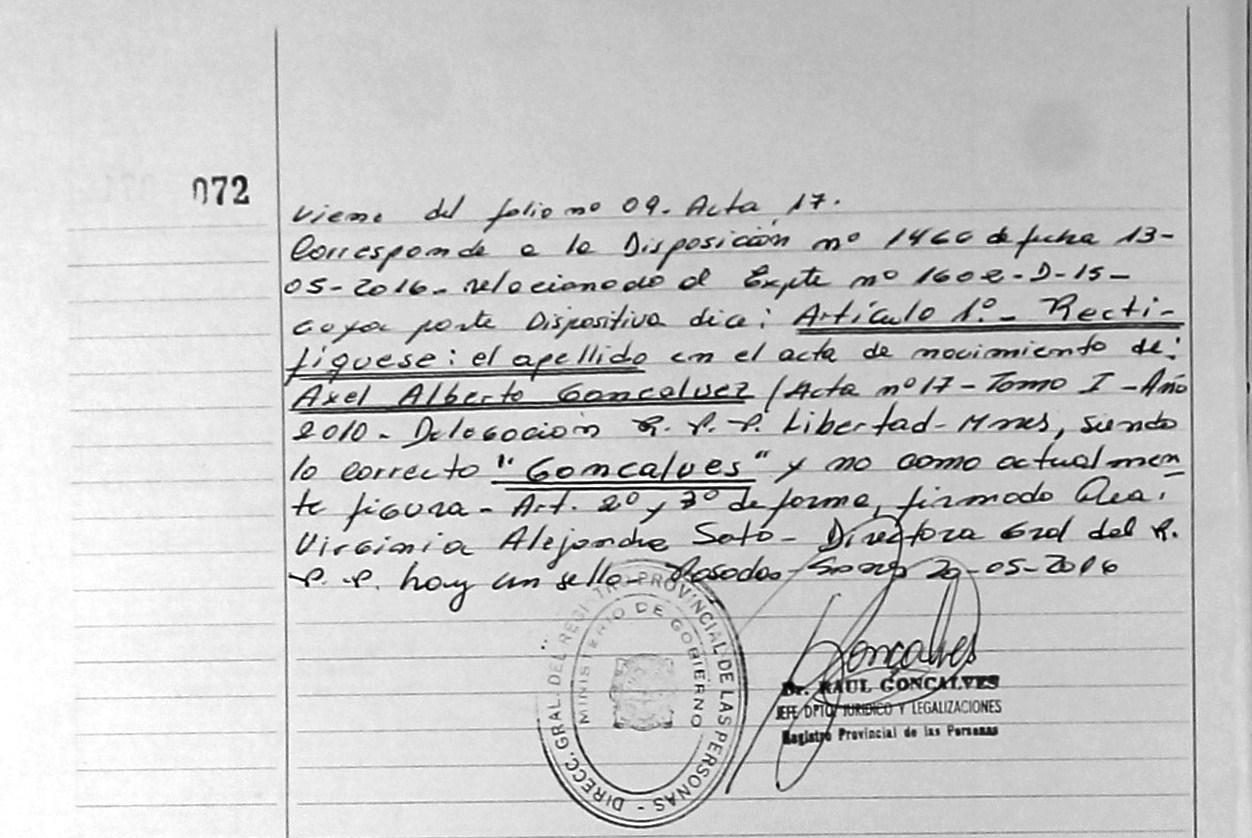 072
viene del folio nº 09. Acta 17.
Corresponde a la Disposición nº 1466 de fecha 13-
05-2016- relacionado al Expte nº 1602-D-15-
cuya parte Dispositiva dice: Artículo 1º- Recti-
fiquese: el apellido en el acta de nacimiento de:
Axel Alberto Goncalvez /Acta nº 17- Tomo I - Año
2010- Delegación R. P. P. Libertad- Mnes, siendo
lo correcto "Goncalves" y no como actualmen
te figura- Art. 2º y 3º de forma, firmado
Virginia Alejandra Soto- Directora Gral del R.
P. P. hay un sello- Posadas- 20-05-2016
DIRECC. GRAL. DEL REGISTRO PROVINCIAL DE LAS PERSONAS -
MINISTERIO DE GOBIERNO
Gonçalves
Dr. RAUL GONCALVES
JEFE DPTO. JURIDICO Y LEGALIZACIONES
Registro Provincial de las Personas